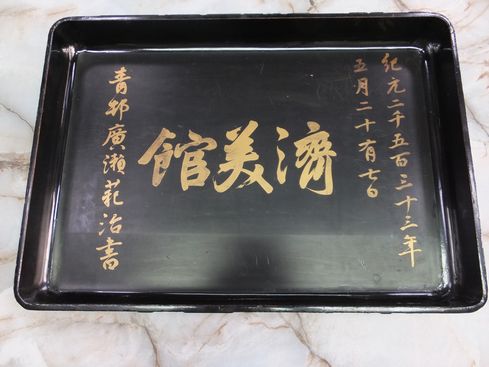 紀元二千五百三十三年
五月二十有七日
濟美館
青邨廣瀨範治書